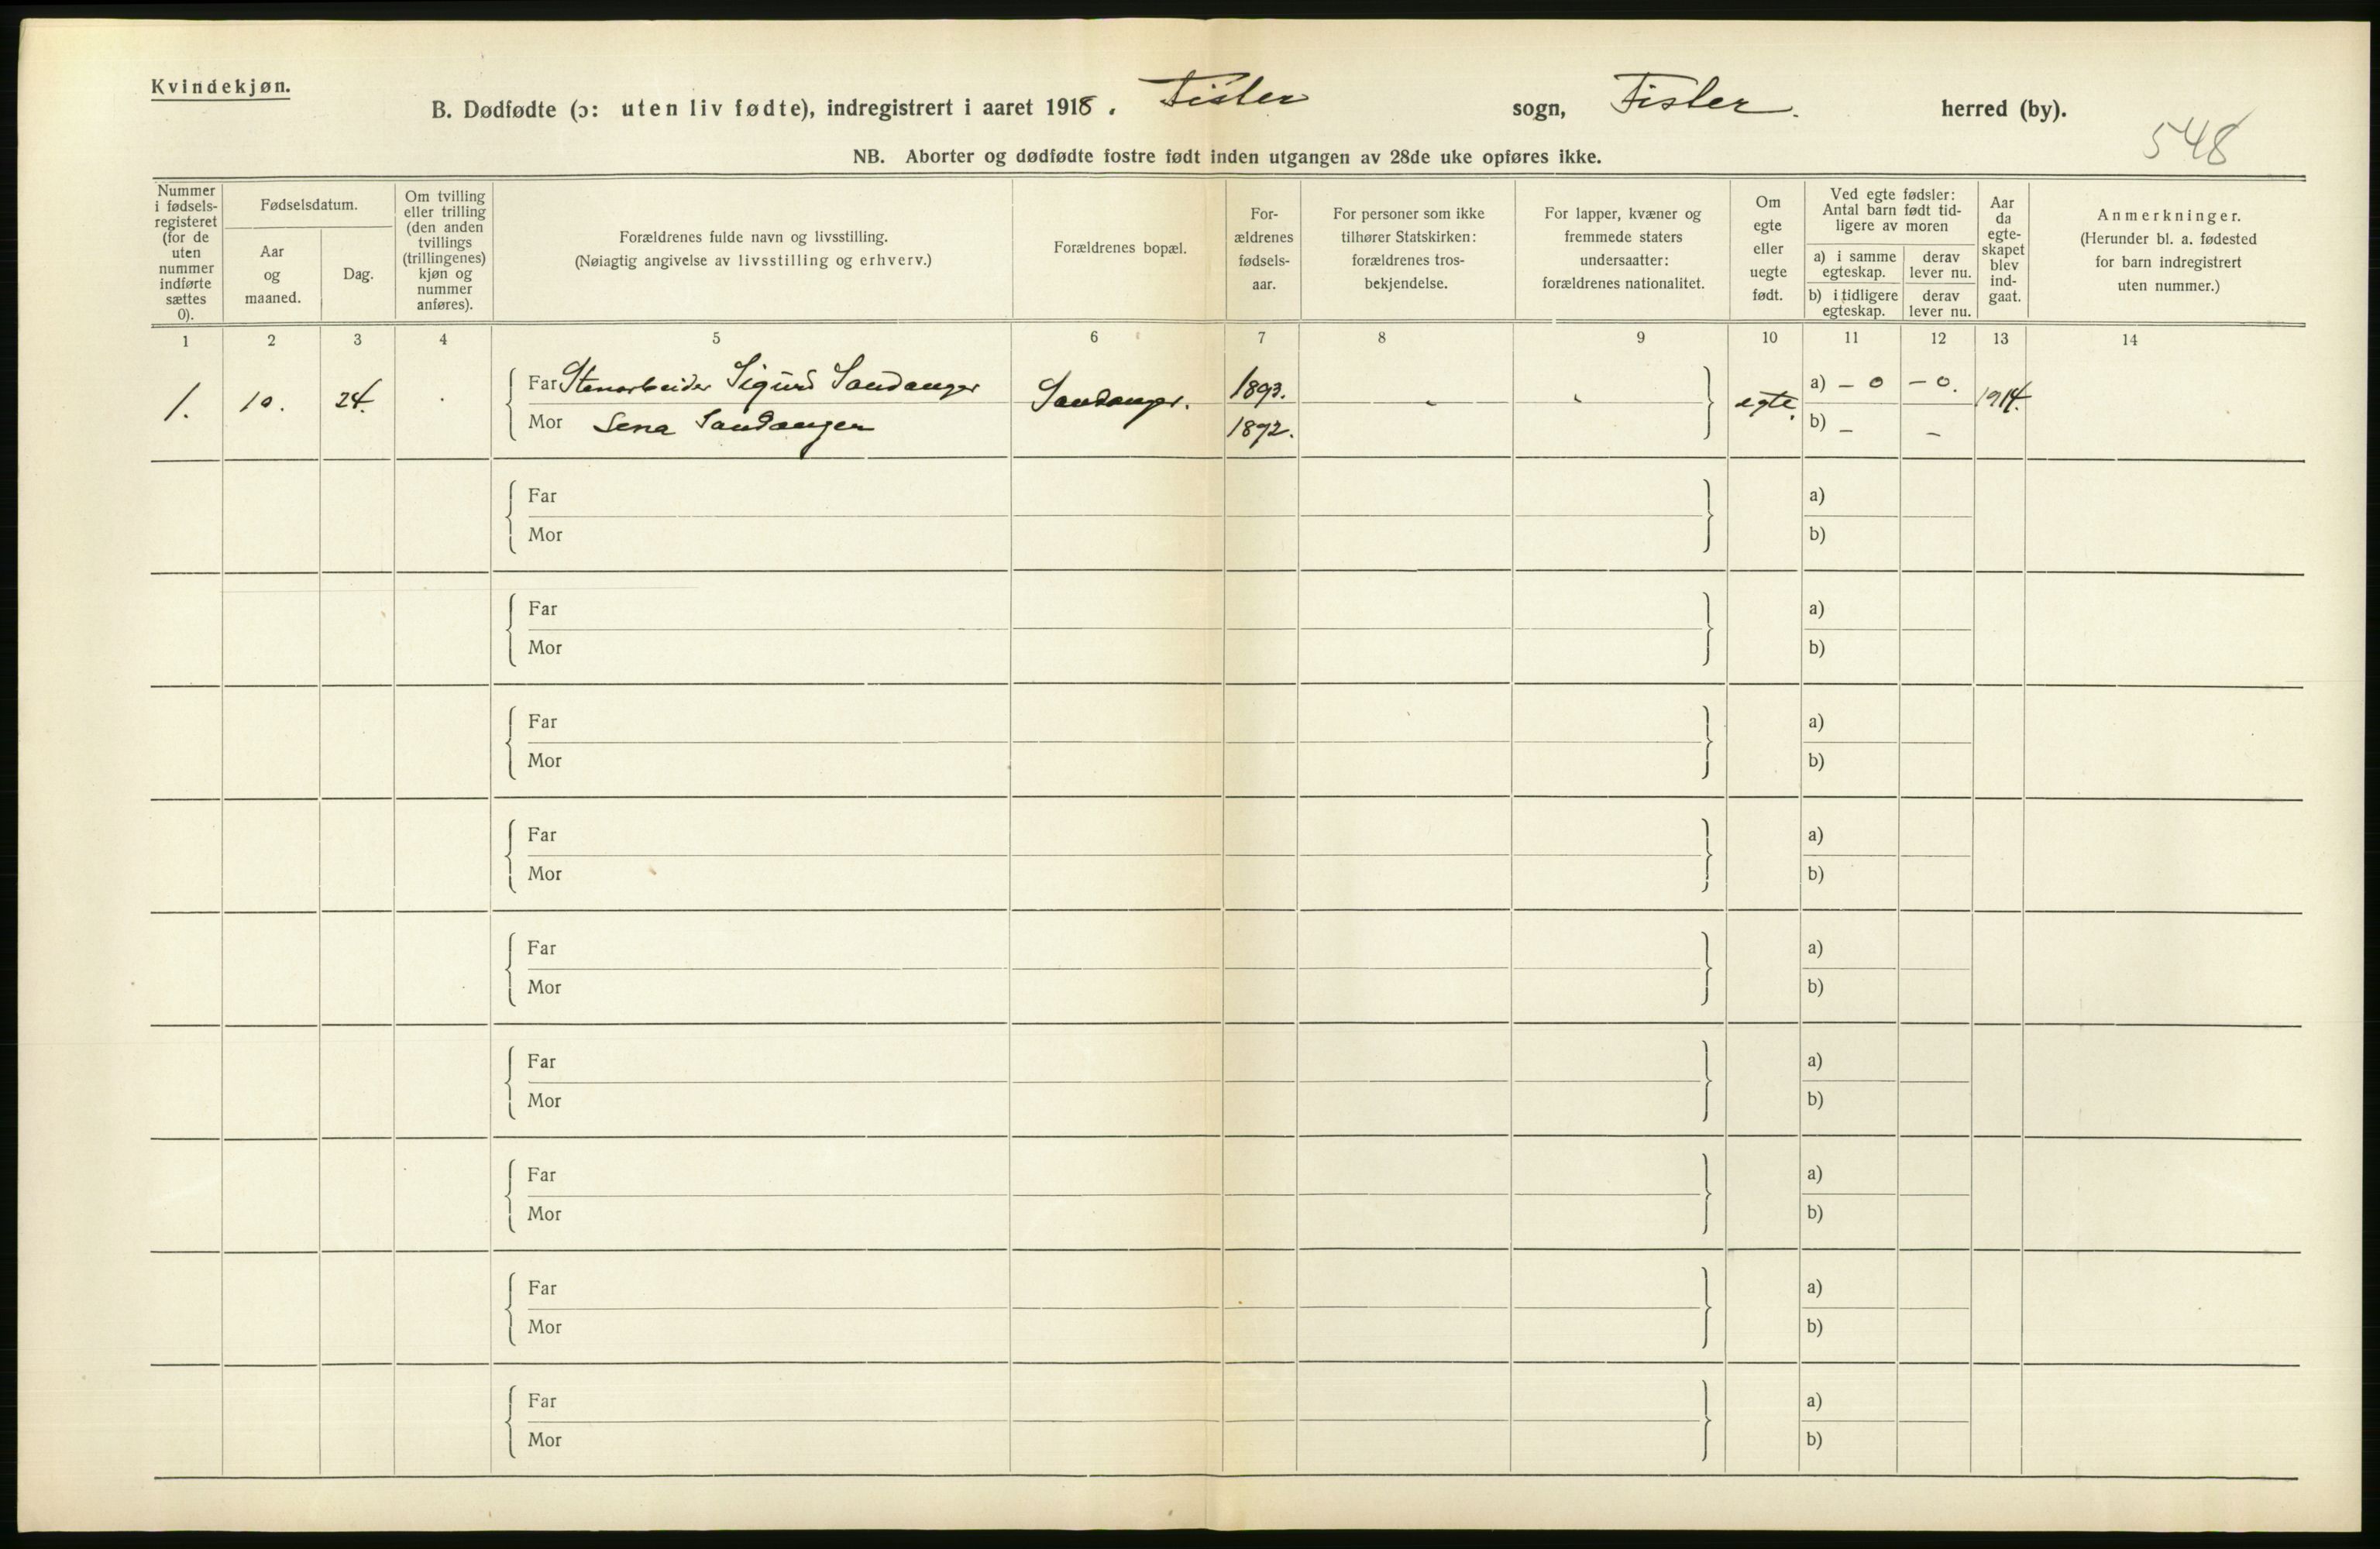 Kvindekjøn.
B. Dødfødte (ɔ: uten liv fødte), indregistrert i aaret 1918. Tisler sogn, Tisler. herred (by).
548
NB. Aborter og dødfødte fostre født inden utgangen av 28de uke opføres ikke.
Nummer i fødsels-registeret (for de uten nummer indførte sættes 0).
Fødselsdatum.
Aar og maaned.
Dag.
Om tvilling eller trilling (den anden tvillings (trillingenes) kjøn og nummer anføres).
Forældrenes fulde navn og livsstilling.
(Nøiagtig angivelse av livsstilling og erhverv.)
Forældrenes bopæl.
For-ældrenes fødsels-aar.
For personer som ikke tilhører Statskirken: forældrenes tros-bekjendelse.
For lapper, kvæner og fremmede staters undersaatter: forældrenes nationalitet.
Om egte eller uegte født.
Ved egte fødsler: Antal barn født tid-ligere av moren
a) i samme egteskap.
derav lever nu.
b) i tidligere egteskap.
derav lever nu.
Aar da egte-skapet blev ind-gaat.
Anmerkninger.
(Herunder bl. a. fødested for barn indregistrert uten nummer.)
1 2 3 4 5 6 7 8 9 10 11 12 13 14
1. 10. 24. Far Stenarbeider Sigurd Sandanger Sandanger. 1893. egte. a) – 0 – 0. 1914.
Mor Lena Sandanger 1892. b) – –
Far a)
Mor b)
Far a)
Mor b)
Far a)
Mor b)
Far a)
Mor b)
Far a)
Mor b)
Far a)
Mor b)
Far a)
Mor b)
Far a)
Mor b)
Far a)
Mor b)